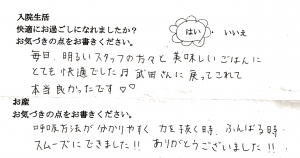 入院生活
快適にお過ごしになれましたか？ はい いいえ
お気づきの点をお書きください。
毎日、明るいスタッフの方々と美味しいごはんに
とても快適でした♬武田さんに戻ってこれて
本当良かったです♡♡
お産
お気づきの点をお書きください。
呼吸方法が分かりやすく 力を抜く時、ふんばる時
スムーズにできました!! ありがとうございました!!